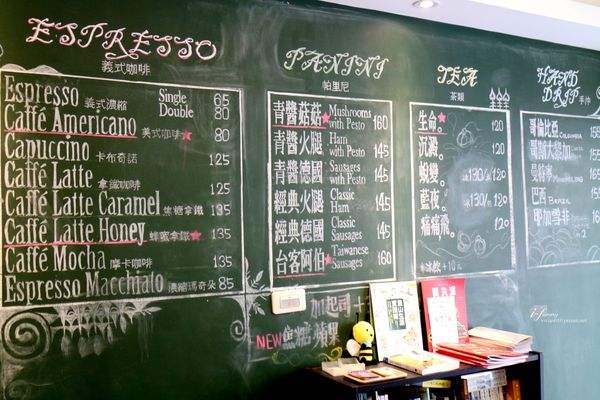 ESPRESSO
義式咖啡
Espresso 義式濃縮 Single 65
Double 80
Caffé Americano 美式咖啡 80
Capuccino 卡布奇諾 125
Caffé Latte 拿鐵咖啡 125
Caffé Latte Caramel 焦糖拿鐵 135
Caffé Latte Honey 蜂蜜拿鐵 135
Caffé Mocha 摩卡咖啡 135
Espresso Macchiato 濃縮瑪奇朵 85
PANINI
帕里尼
青醬菇菇 Mushrooms with Pesto 160
青醬火腿 Ham with Pesto 145
青醬德國 Sausages with Pesto 145
經典火腿 Classic Ham 145
經典德國 Classic Sausages 145
台客阿伯 Taiwanese Sausages 160
加起司
NEW 焦糖蘋果
TEA
茶類
生命。 120
沉澱。 120
蛻變。 130
藍夜。 130
痛痛飛。 120
冰飲+10元
HAND DRIP 手沖
哥倫比亞 COLOMBIA 155
曼特寧 165
巴西 155
耶加雪菲